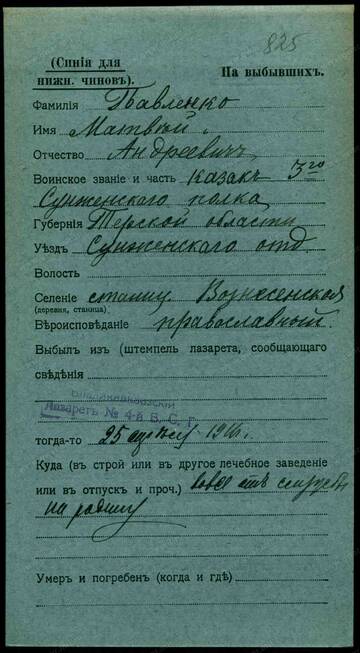 825
(Синія для
нижн. чиновъ).
На выбывшихъ.
Фамилія Павленко
Имя Матвѣй
Отчество Андреевичъ
Воинское званіе и часть казакъ 3го
Сунженскаго полка
Губернія Терской области
Уѣздъ Сунженскаго отд
Волость
Селеніе станиц Вознесенской
(деревня, станица)
Вѣроисповѣданіе православный
Выбылъ изъ (штемпель лазарета, сообщающаго
свѣдѣнія
Владикавказскій
Лазаретъ № 4-й В. С. Г.
тогда-то 25 1916 г.
Куда (въ строй или въ другое лечебное заведеніе
или въ отпускъ и проч.)
на родину
Умеръ и погребенъ (когда и гдѣ)